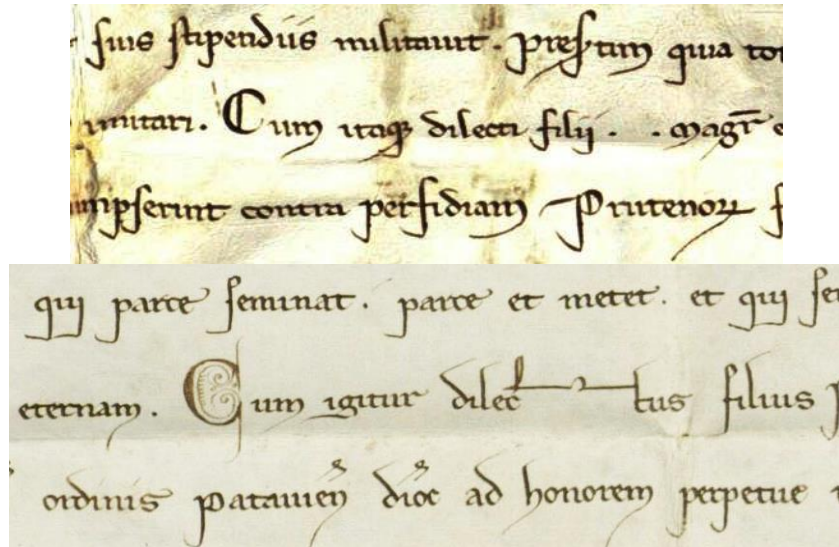 suis stipendiis militauit. presertim quia
mutari. Cum itaq dilecti filij . . magr
umpserint contra perfidiam Prutenorꝝ
qui parce seminat. parce et metet. et qui
eternam. Cum igitur dilectus filius
ordinis Patauien dioc ad honorem perpetue